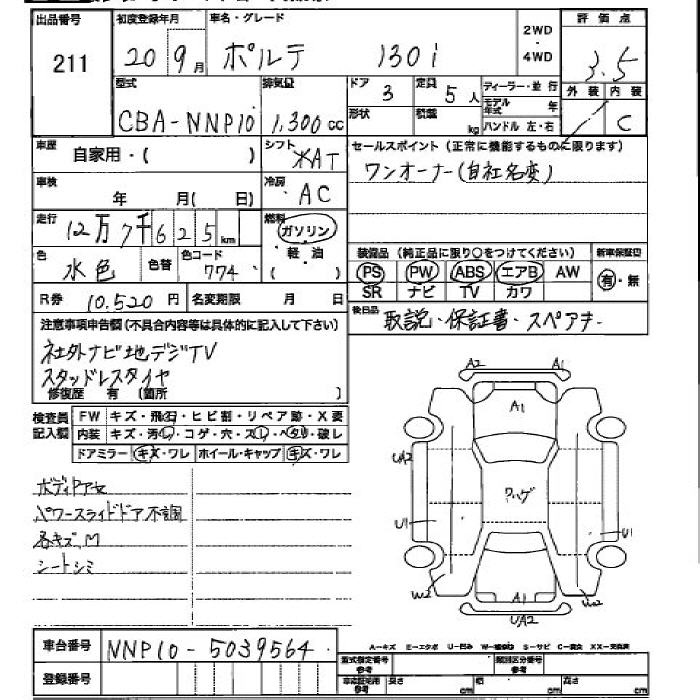 出品番号 211
初度登録年月 20 9月
車名・グレード ポルテ 130i
2WD ・ 4WD
評価点 3.5
外装 内装 C
型式 CBA-NNP10
排気量 1,300cc
ドア 3
定員 5人
形状
積載 kg
ディーラー・並行
モデル年式 年
ハンドル 左・右
車歴 自家用・( )
シフト AT
セールスポイント(正常に機能するものに限ります)
ワンオーナー(自社名変)
車検 年 月( 日)
冷房 AC
走行 12万7千625km
燃料 ガソリン
軽油
( )
色 水色
色替
色コード 774
装備品(純正品に限り○をつけてください)
新車保証書
PS PW ABS エアB AW
SR ナビ TV カワ
有・無
R券 10,520円
名変期限 月 日
後日品 取説・保証書・スペアキー
注意事項申告欄(不具合内容等は具体的に記入して下さい)
社外ナビ 地デジTV
スタッドレスタイヤ
修復歴 有(箇所 )
検査員記入欄
FW キズ・飛石・ヒビ割・リペア跡・X要
内装 キズ・汚レ・コゲ・穴・スレ・ヘタリ・破レ
ドアミラー キズ・ワレ ホイール・キャップ キズ・ワレ
パワースライドドア不調
各キズ,M
シートシミ
A2 A1
A1
UA2
ワハゲ
U1 U1
W2 W2
A1
UA2
車台番号 NNP10-5039564
登録番号
A-キズ E-エクボ U-凹み S-サビ
型式指定番号 参考
類別区分番号 参考
参考 長さ cm 幅 cm 高さ cm